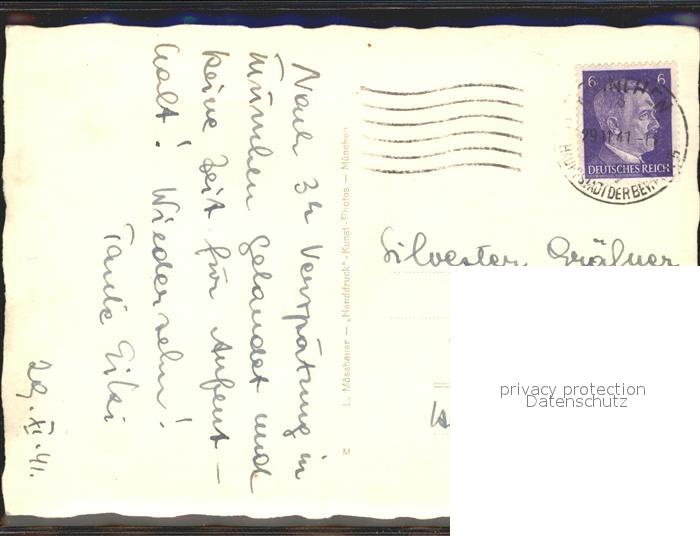 Nach 3h Verspätung in
München gelandet und
keine Zeit für Aufent–
halt! Wiedersehn!
Tante
29. XI. 41.
L. Mössbauer — „Handdruck“ - Kunst-Photos — München
M
6 6
DEUTSCHES REICH
MÜNCHEN
29.11.41
HAUPTSTADT DER BEWEGUNG
Silvester Gräfner
privacy protection
Datenschutz